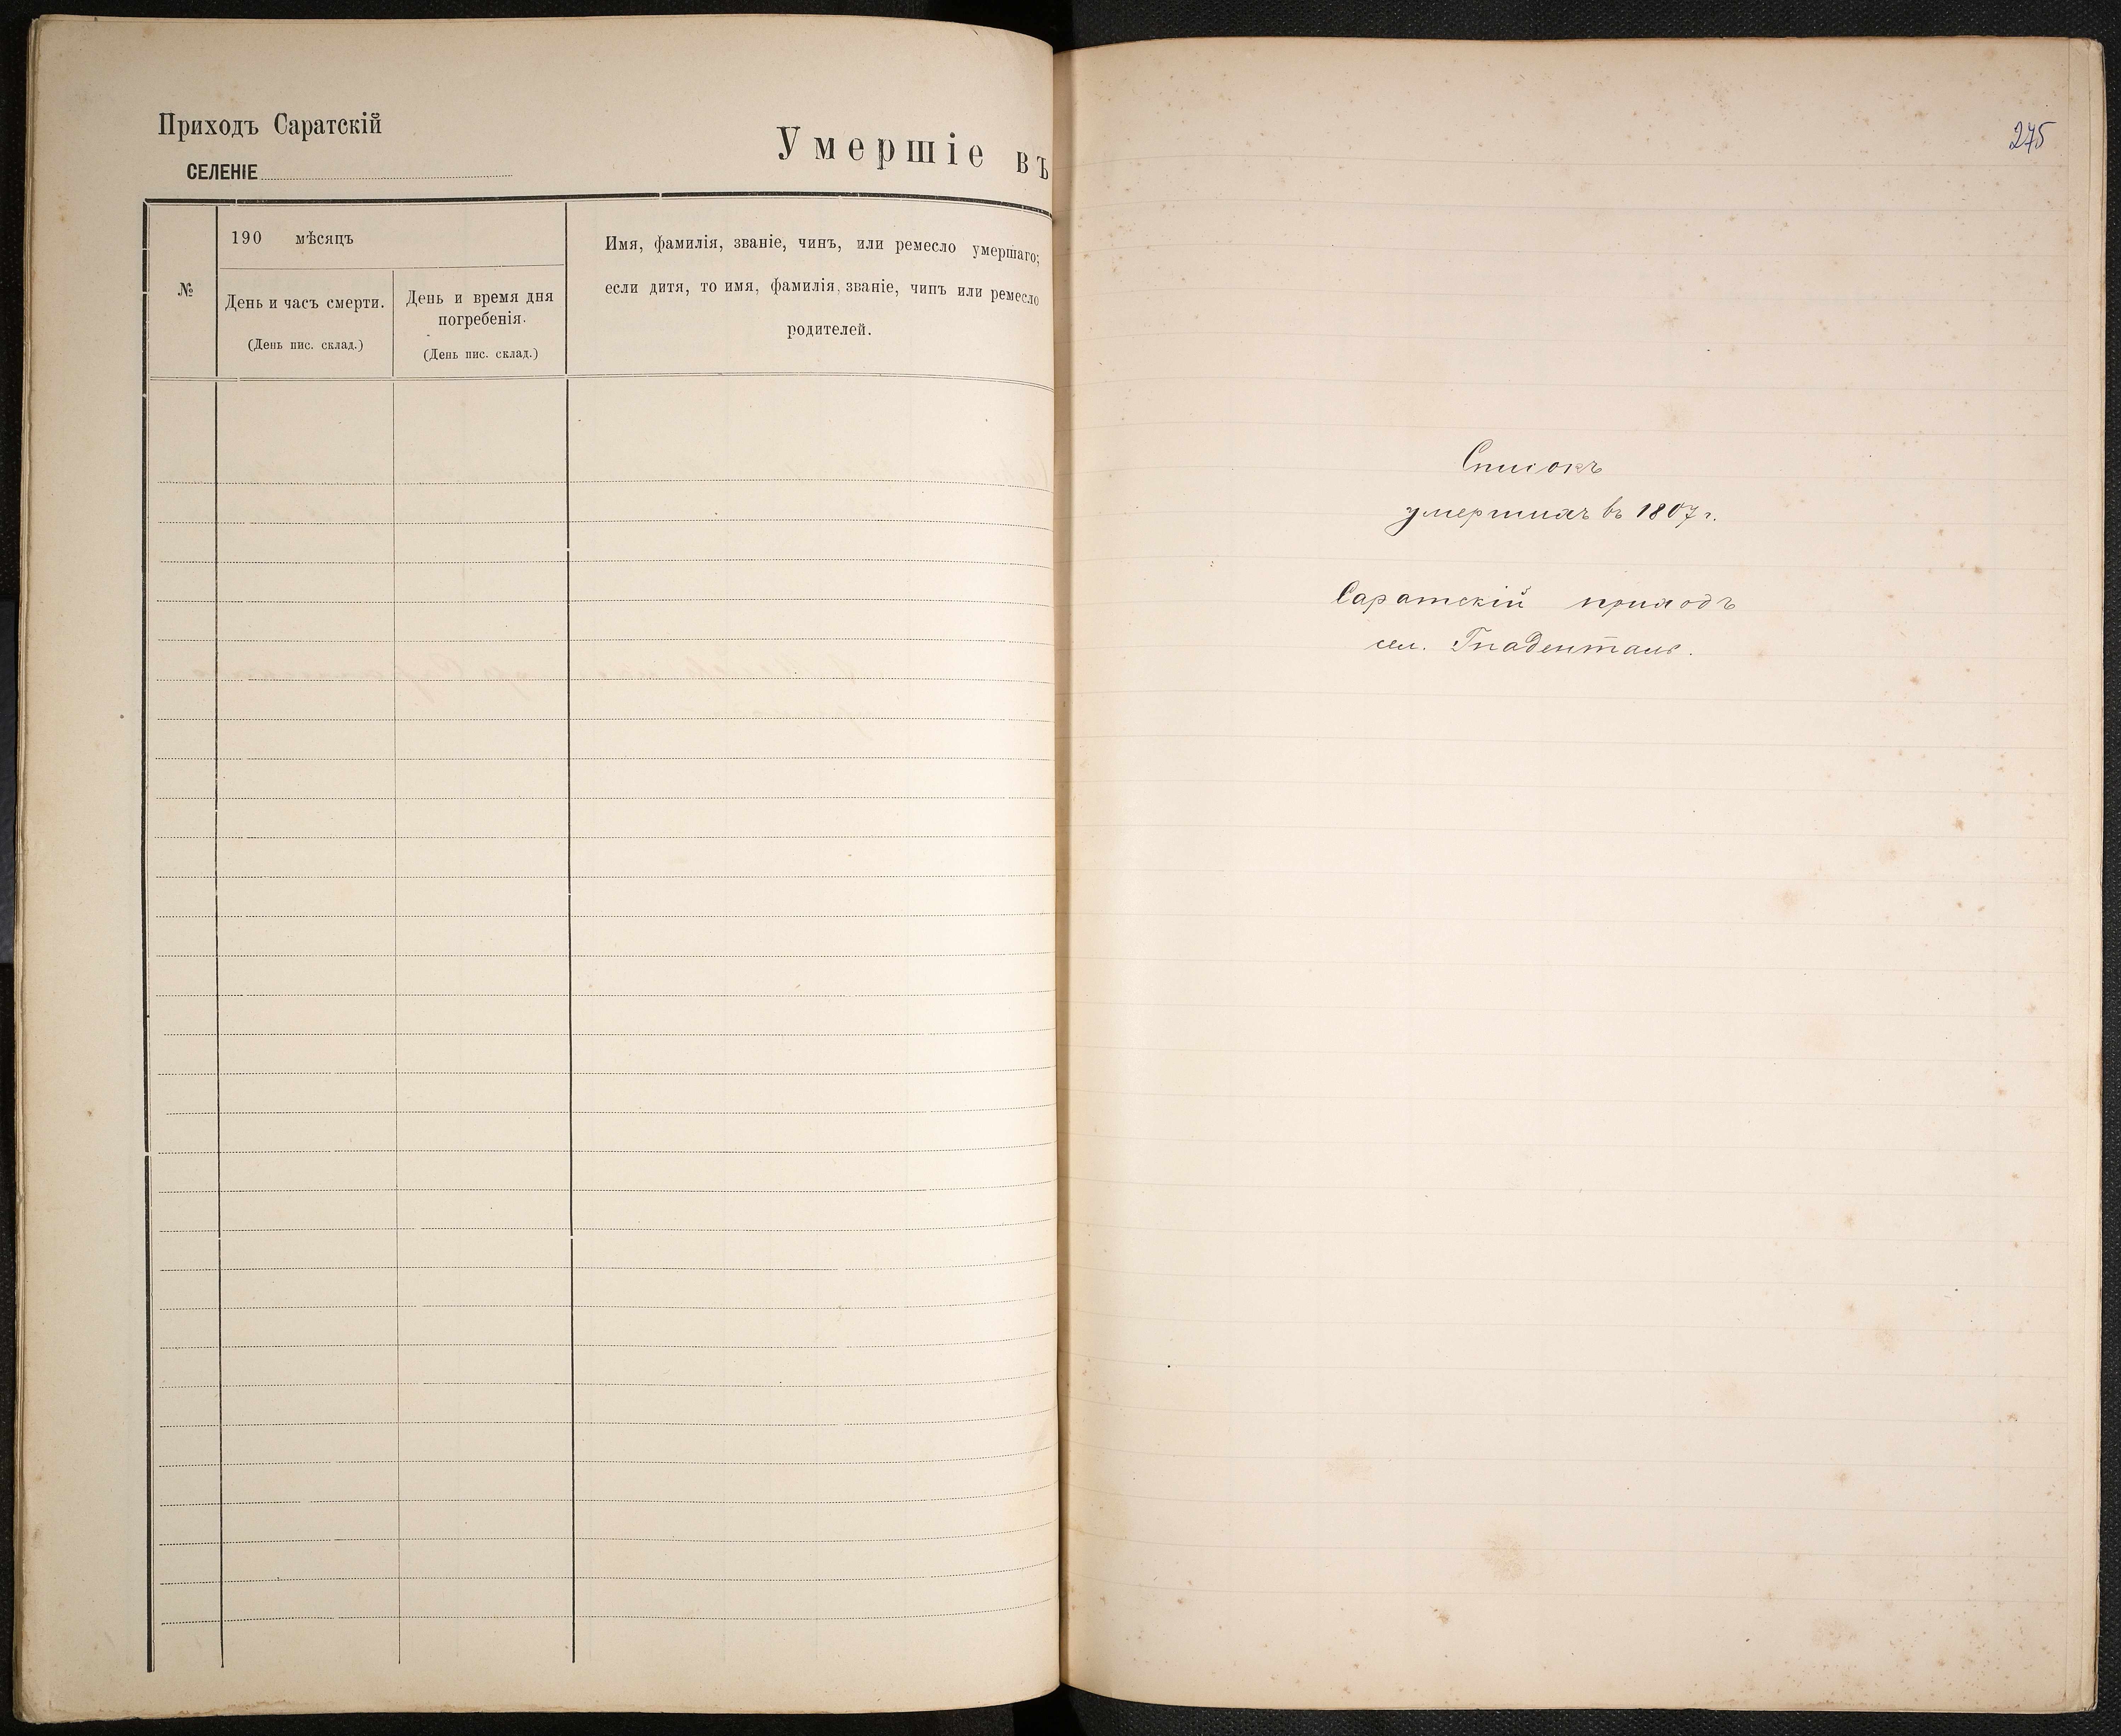 Приходъ Саратскій
СЕЛЕНІЕ
Умершіе въ
№
190 мѣсяцъ
День и часъ смерти.
(День пис. склад.)
День и время дня
погребенія.
(День пис. склад.)
Имя, фамилія, званіе, чинъ, или ремесло умершаго;
если дитя, то имя, фамилія, званіе, чинъ или ремесло
родителей.
275
Списокъ
умершихъ въ 1807 г.
Саратскій приходъ
сел. Гнаденталь.